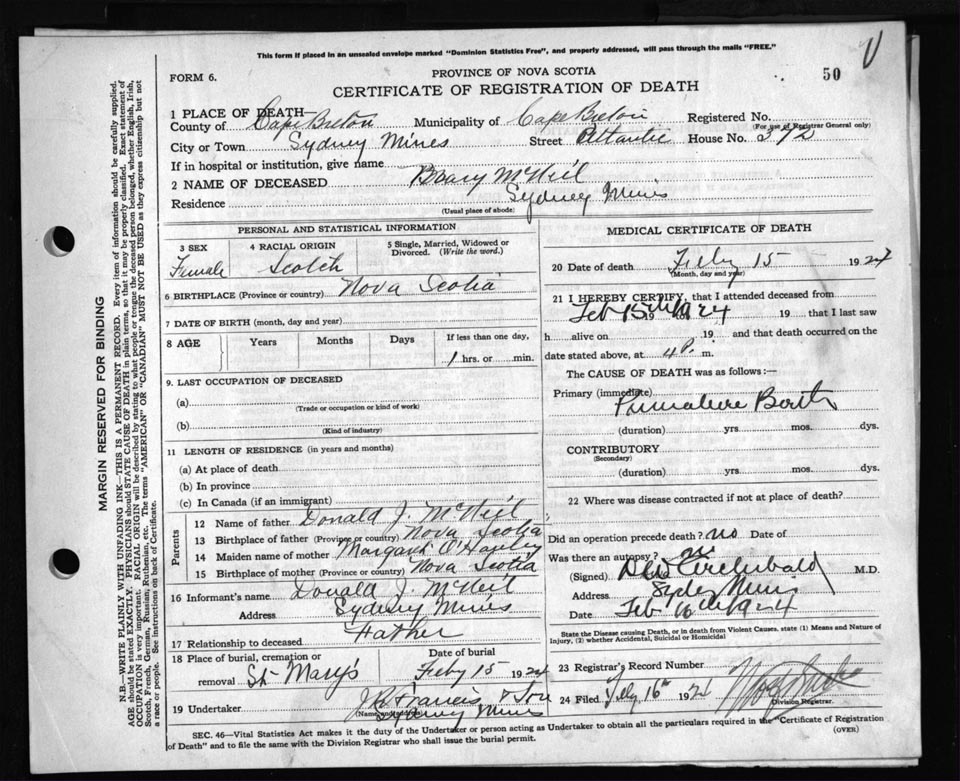 This form if placed in an unsealed envelope marked "Dominion Statistics Free", and properly addressed, will pass through the mails "FREE."
V
FORM 6.
PROVINCE OF NOVA SCOTIA
50
CERTIFICATE OF REGISTRATION OF DEATH
1 PLACE OF DEATH
County of Cape Breton Municipality of Cape Breton Registered No.
(For use of Registrar General only)
City or Town Sydney Mines Street Atlantic House No. 372
If in hospital or institution, give name
2 NAME OF DECEASED McNeil
Residence Sydney Mines
(Usual place of abode)
PERSONAL AND STATISTICAL INFORMATION
3 SEX 4 RACIAL ORIGIN 5 Single, Married, Widowed or Divorced. (Write the word.)
Female Scotch
6 BIRTHPLACE (Province or country) Nova Scotia
7 DATE OF BIRTH (month, day and year)
8 AGE Years Months Days If less than one day,
1 hrs. or min.
9. LAST OCCUPATION OF DECEASED
(a)
(Trade or occupation or kind of work)
(b)
(Kind of industry)
11 LENGTH OF RESIDENCE (in years and months)
(a) At place of death
(b) In province
(c) In Canada (if an immigrant)
Parents
12 Name of father Donald J. McNeil
13 Birthplace of father (Province or country) Nova Scotia
14 Maiden name of mother Margaret
15 Birthplace of mother (Province or country) Nova Scotia
16 Informant's name Donald J. McNeil
Address Sydney Mines
17 Relationship to deceased Father
18 Place of burial, cremation or removal St Mary's
Date of burial Feby 15 1924
19 Undertaker J. R. Francis & Son
(Name and address)
Sydney Mines
MEDICAL CERTIFICATE OF DEATH
20 Date of death Feby 15 1924
(Month, day and year)
21 I HEREBY CERTIFY, that I attended deceased from
Feb 15th 1924 19 that I last saw
h alive on 19 and that death occurred on the
date stated above, at 4 P. m.
The CAUSE OF DEATH was as follows:—
Primary (immediate) Premature Birth
(duration) yrs. mos. dys.
CONTRIBUTORY
(Secondary)
(duration) yrs. mos. dys.
22 Where was disease contracted if not at place of death?
Did an operation precede death? no Date of
Was there an autopsy? no
(Signed) Archibald M.D.
Address Sydney Mines
Date Feb 16th 1924
State the Disease causing Death, or in death from Violent Causes, state (1) Means and Nature of Injury, (2) whether Accidental, Suicidal or Homicidal
23 Registrar's Record Number
24 Filed Feby 16th 1924
Division Registrar.
SEC. 46—Vital Statistics Act makes it the duty of the Undertaker or person acting as Undertaker to obtain all the particulars required in the "Certificate of Registration
of Death" and to file the same with the Division Registrar who shall issue the burial permit.
(OVER)
MARGIN RESERVED FOR BINDING
N.B.—WRITE PLAINLY WITH UNFADING INK—THIS IS A PERMANENT RECORD. Every item of information should be carefully supplied.
AGE should be stated EXACTLY. PHYSICIANS should STATE CAUSE OF DEATH in plain terms, so that it may be properly classified. Exact statement of
OCCUPATION is very important. RACIAL ORIGIN will be described by stating to what people or tongue the deceased person belonged, whether English, Irish,
Scotch, French, German, Russian, Ruthenian, etc. The terms "AMERICAN" or "CANADIAN" MUST NOT BE USED as they express citizenship but not
a race or people. See instructions on back of Certificate.